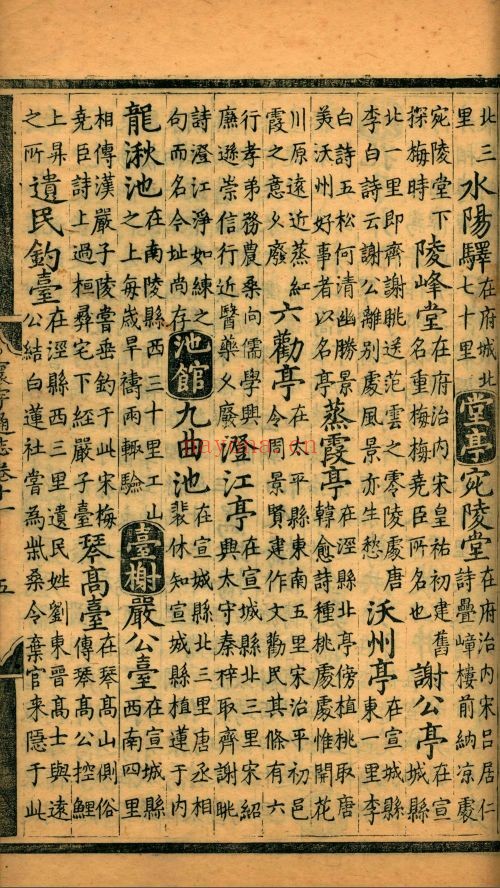 北三里水陽驛在府城北七十里堂亭宛陵堂在府治内宋吕居仁詩疊嶂樓前納凉處
宛陵堂下探梅時陵峰堂在府治内宋皇祐初建舊名重梅梅堯臣所名也謝公亭在宣城縣
北一里即齊謝眺送范雲之零陵處唐李白詩云謝公離别處風景亦生愁沃州亭在宣城縣東一里李
白詩五松何清幽勝景美沃州好事者以名亭蒸霞亭在涇縣北亭傍植桃取唐韓愈詩種桃處處惟開花
川原遠近蒸紅霞之意乂廢六勸亭在平縣東南五里宋治平初邑令周景賢建作文勸民其條有六
行孝弟務農桑向儒學興㢘遜崇信行近醫藥乂廢澄江亭在宣城縣北三里宋紹興太守秦梓取齊謝眺
詩澄江淨如練之句而名今址尚存池館九曲池在宣城縣北三里唐丞相裴休知宣城縣植蓮于内
龍湫池在南陵縣西三十里工山之上每歲旱禱雨輙驗臺榭嚴公臺在宣城縣西南四里
相傳漢嚴子陵嘗垂釣于此宋梅堯臣詩上過桓彛宅下經嚴子臺琴高臺在琴高山側俗傳琴高公控鯉
上昇之所遺民釣臺在涇縣西三里遺民姓劉東晉高士與遠公結白蓮社嘗為柴桑令棄官来隱于此
寰宇通志卷十一
五